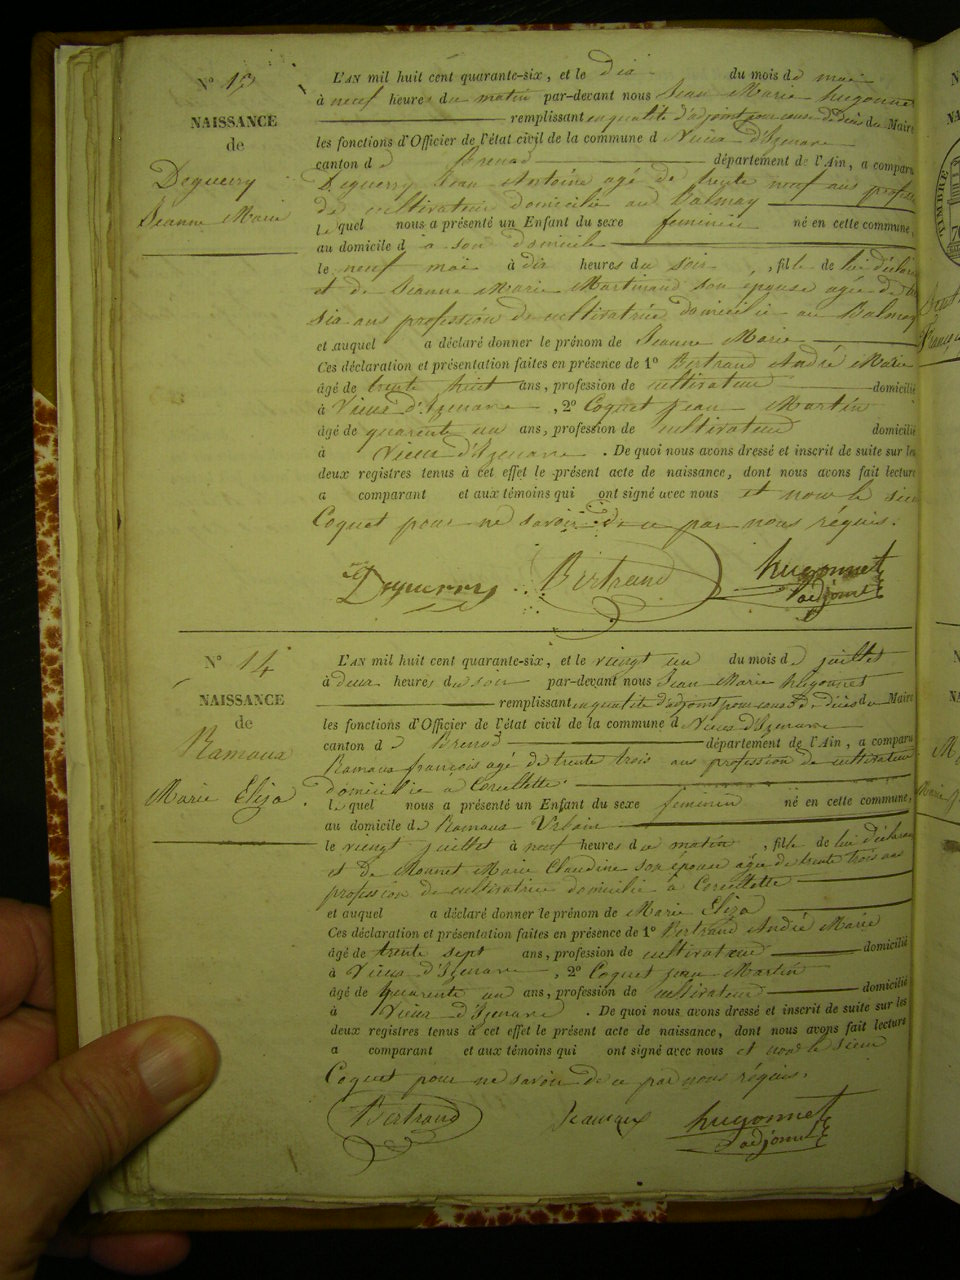 N° 13
NAISSANCE
de
Deguerry
Jeanne Marie
L'AN mil huit cent quarante-six, et le dix du mois de mai
à neuf heures du matin par-devant nous Jean Marie hugonnet
remplissant en qualité d'adjoint pour cause de décès du Maire
les fonctions d'Officier de l'état civil de la commune d Vieux d'Izenave
canton d Brenod département de l'Ain, a comparu
Deguerry Jean Antoine agé de trente neuf ans profession
de cultivateur domicilié au Balmay
lequel nous a présenté un Enfant du sexe féminin né en cette commune,
au domicile d à son domicile
le neuf mai à dix heures du soir, fille de lui déclarant
et de Jeanne Marie Martinand son épouse agée de
six ans profession de cultivatrice domicilié au Balmay
et auquel a déclaré donner le prénom de Jeanne Marie
Ces déclaration et présentation faites en présence de 1° Bertrand André Marie
âgé de trente huit ans, profession de cultivateur domicilié
à Vieux d'Izenave, 2° Coquet jean Martin
âgé de quarente un ans, profession de cultivateur domicilié
à Vieux d'Izenave. De quoi nous avons dressé et inscrit de suite sur les
deux registres tenus à cet effet le présent acte de naissance, dont nous avons fait lecture
a comparant et aux témoins qui ont signé avec nous et non le sieur
Coquet pour ne savoir de ce par nous réquis.
Deguerry Bertrand hugonnet
l'adjoint
N° 14
NAISSANCE
de
Ramoux
Marie Eliza
L'AN mil huit cent quarante-six, et le vingt un du mois de juillet
à deux heures du soir par-devant nous Jean Marie hugonnet
remplissant en qualité d'adjoint pour cause de décès du Maire
les fonctions d'Officier de l'état civil de la commune d Vieux d'Izenave
canton d Brenod département de l'Ain, a comparu
Ramoux françois agé de trente trois ans profession de cultivateur
domicilié à Corcellette
lequel nous a présenté un Enfant du sexe féminin né en cette commune,
au domicile de Ramoux Urbain
le vingt juillet à neuf heures du matin, fille de lui déclarant
et de Monnet Marie Claudine son épouse agée de trente trois ans
profession de cultivatrice domicilié à Corcellette
et auquel a déclaré donner le prénom de Marie Eliza
Ces déclaration et présentation faites en présence de 1° Bertrand André Marie
âgé de trente sept ans, profession de cultivateur domicilié
à Vieux d'Izenave, 2° Coquet jean Martin
âgé de quarente un ans, profession de cultivateur domicilié
à Vieux d'Izenave. De quoi nous avons dressé et inscrit de suite sur les
deux registres tenus à cet effet le présent acte de naissance, dont nous avons fait lecture
a comparant et aux témoins qui ont signé avec nous et non le sieur
Coquet pour ne savoir de ce par nous réquis.
Bertrand hugonnet
l'adjoint
TIMBRE